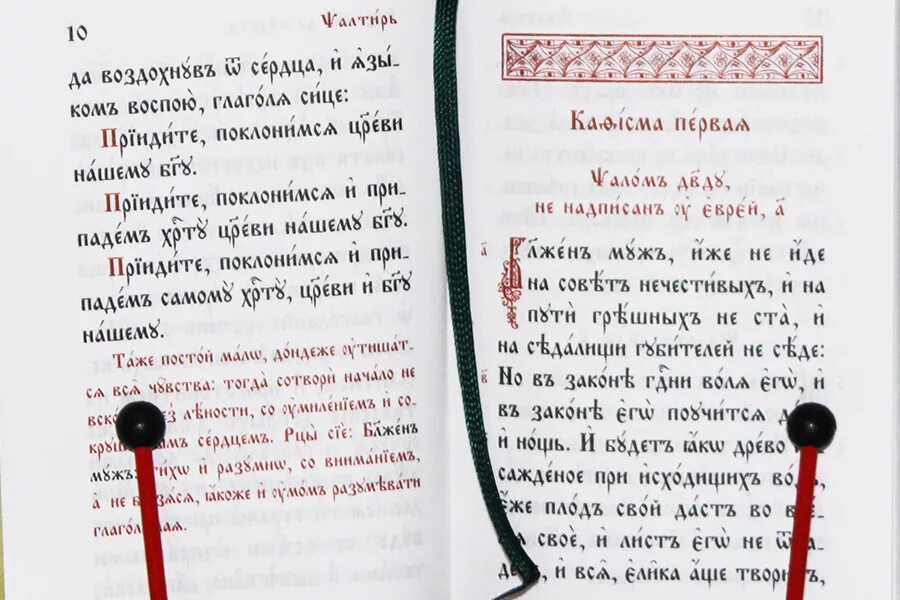 10
Ѱалти́рь
да воздохнꙋ́въ ѿ се́рдца, и҆ ѧ҆зы́-
комъ воспою̀, глаго́лѧ си́це:
Прїиди́те, поклони́мсѧ цр҃е́ви
на́шемꙋ бг҃ꙋ.
Прїиди́те, поклони́мсѧ и҆ при-
паде́мъ хрⷭ҇тꙋ̀ цр҃е́ви на́шемꙋ бг҃ꙋ.
Прїиди́те, поклони́мсѧ и҆ при-
паде́мъ самомꙋ̀ хрⷭ҇тꙋ̀, цр҃е́ви и҆ бг҃ꙋ
на́шемꙋ.
Та́же посто́й ма́лѡ, до́ндеже ᲂу҆тиша́т-
сѧ всѧ̑ чꙋ̑вства: тогда̀ сотворѝ нача́ло не
лѣ́ности, со ᲂу҆миле́нїемъ и҆ со-
се́рдцемъ. Рцы̀ сїѐ: Бл҃же́нъ
мꙋ́жъ, ти́хѡ и҆ разꙋ́мнѡ, со внима́нїемъ,
а҆ не ꙗ҆́коже и҆ ᲂу҆мо́мъ разꙋмѣва́ти
Каѳі́сма пе́рваѧ
Ѱало́мъ дв҃дꙋ,
не надпи́санъ ᲂу҆ є҆вре́й, а҃
а҃
Бл҃же́нъ мꙋ́жъ, и҆́же не и҆́де
на совѣ́тъ нечести́выхъ, и҆ на
пꙋтѝ грѣ́шныхъ не ста̀, и҆
на сѣда́лищи гꙋби́телей не сѣ́де:
в҃
Но въ зако́нѣ гдⷭ҇ни во́лѧ є҆гѡ̀, и҆
въ зако́нѣ є҆гѡ̀ поꙋчи́тсѧ
и҆ но́щь. И҆ бꙋ́детъ ꙗ҆́кѡ дре́во
сажде́ное при и҆схо́дищихъ
є҆́же пло́дъ сво́й да́стъ во
своѐ, и҆ ли́стъ є҆гѡ̀ не
и҆ всѧ̑, є҆ли̑ка а҆́ще твори́тъ,